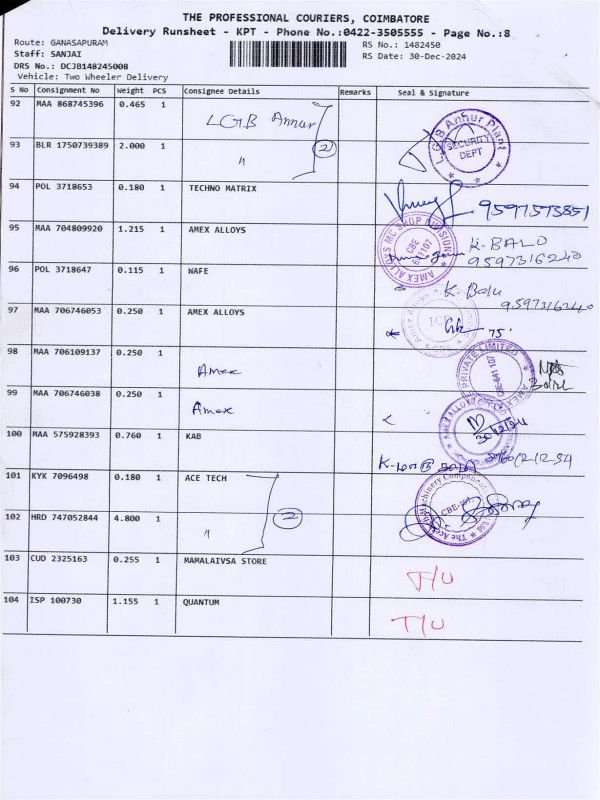 THE PROFESSIONAL COURIERS, COIMBATORE
Delivery Runsheet - KPT - Phone No.:0422-3505555 - Page No.:8
Route: GANASAPURAM
Staff: SANJAI
DRS No.: DCJB148245008
Vehicle: Two Wheeler Delivery
RS No.: 1482450
RS Date: 30-Dec-2024
S No Consignment No Weight PCS Consignee Details Remarks Seal & Signature
92 MAA 868745396 0.465 1 LGB Annur
93 BLR 1750739389 2.000 1 " 2
LGB Annur Plant
SECURITY
DEPT
94 POL 3718653 0.180 1 TECHNO MATRIX 9597573851
95 MAA 704809920 1.215 1 AMEX ALLOYS K. BALU
9597316240
AMEX ALLOYS MC SHOP DIVISION
CBE
641107
96 POL 3718647 0.115 1 WAFE K. Balu
9597316240
97 MAA 706746053 0.250 1 AMEX ALLOYS
98 MAA 706109137 0.250 1 Amex
PRIVATE LIMITED
99 MAA 706746038 0.250 1 Amex
30/12/24
100 MAA 575928393 0.760 1 KAB
101 KYK 7096498 0.180 1 ACE TECH
102 HRD 747052844 4.800 1 " 2
103 CUD 2325163 0.255 1 MAMALAIVSA STORE T/U
104 ISP 100730 1.155 1 QUANTUM T/U